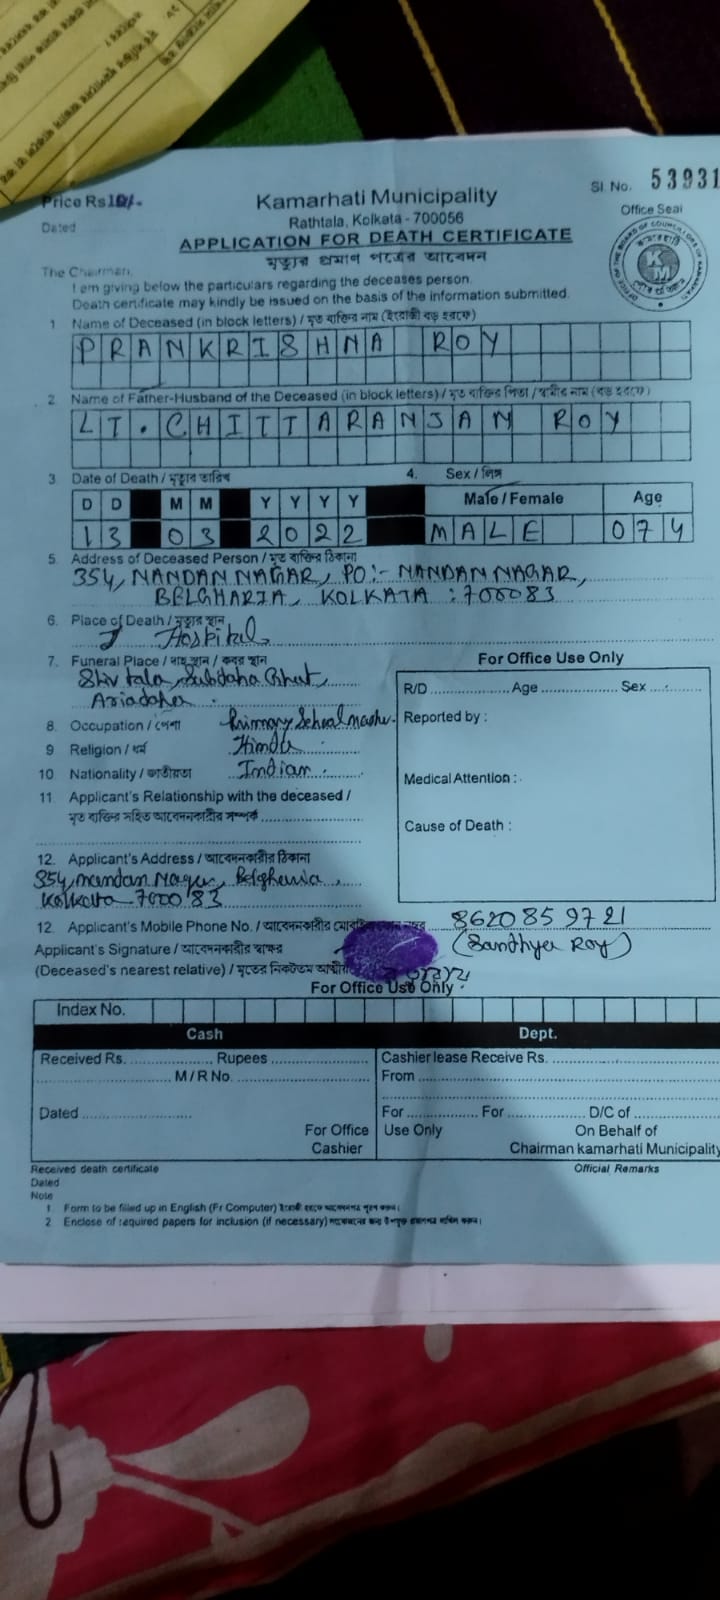 Price Rs 10/-
Sl No. 53931
Kamarhati Municipality
Rathtala, Kolkata - 700056
Office Seal
Dated
APPLICATION FOR DEATH CERTIFICATE
মৃত্যুর প্রমাণ পত্রের আবেদন
The Chairman,
I am giving below the particulars regarding the deceases person.
Death certificate may kindly be issued on the basis of the information submitted.
1 Name of Deceased (in block letters) / মৃত ব্যক্তির নাম (ইংরাজী বড় হরফে)
PRANKRISHNA ROY
2. Name of Father-Husband of the Deceased (in block letters) / মৃত ব্যক্তির পিতা / স্বামীর নাম (বড় হরফে)
LT. CHITTARANJAN ROY
3 Date of Death / মৃত্যুর তারিখ 4. Sex / লিঙ্গ
D D M M Y Y Y Y Male / Female Age
13 03 2022 MALE 074
5. Address of Deceased Person / মৃত ব্যক্তির ঠিকানা
354, NANDAN NAGAR, PO:- NANDAN NAGAR,
BELGHARIA, KOLKATA : 700083
6. Place of Death / মৃত্যুর স্থান
Hospital
7. Funeral Place / দাহ স্থান / কবর স্থান
For Office Use Only
Shiv tala, Ghat,
Ariadaha
R/D Age Sex
8. Occupation / পেশা Primary School
Reported by :
9 Religion / ধর্ম Hindu
10 Nationality / জাতীয়তা Indian
Medical Attention :
11 Applicant's Relationship with the deceased /
মৃত ব্যক্তির সহিত আবেদনকারীর সম্পর্ক
Cause of Death :
12. Applicant's Address / আবেদনকারীর ঠিকানা
354, nandan Nagar, Belgharia,
Kolkata 700083
12. Applicant's Mobile Phone No. / আবেদনকারীর 8620859721
Applicant's Signature / আবেদনকারীর স্বাক্ষর (Sandhya Roy)
(Deceased's nearest relative) / মৃতের নিকটতম
For Office Use Only
Index No.
Cash Dept.
Received Rs. Rupees Cashier lease Receive Rs.
M / R No. From
Dated For For D/C of
For Office Use Only On Behalf of
Cashier Chairman kamarhati Municipality
Received death certificate Official Remarks
Dated
Note
1 Form to be filled up in English (Fr Computer) ইংরাজী হরফে আবেদনপত্র পূরণ করুন।
2 Enclose of required papers for inclusion (if necessary)